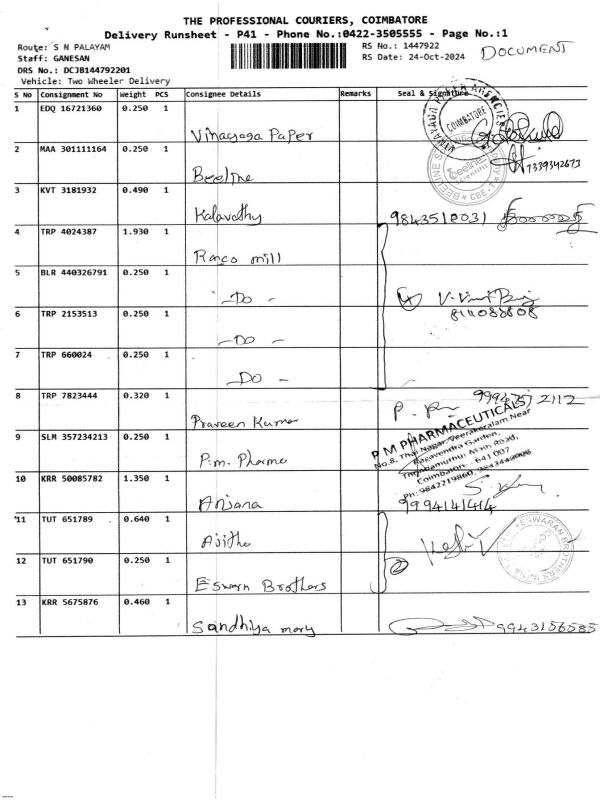 THE PROFESSIONAL COURIERS, COIMBATORE
Delivery Runsheet - P41 - Phone No.:0422-3505555 - Page No.:1
Route: S N PALAYAM
RS No.: 1447922
DOCUMENT
Staff: GANESAN
RS Date: 24-Oct-2024
DRS No.: DCJB144792201
Vehicle: Two Wheeler Delivery
S No Consignment No Weight PCS Consignee Details Remarks Seal & Signature
1 EDQ 16721360 0.250 1
Vinayaga Paper
COIMBATORE
2 MAA 301111164 0.250 1
Beeline
7339342673
CBE-1
3 KVT 3181932 0.490 1
Kalavathy 9843510031
4 TRP 4024387 1.930 1
Ranco mill
5 BLR 440326791 0.250 1
-Do-
6 TRP 2153513 0.250 1
-Do-
7 TRP 660024 0.250 1
-Do-
8 TRP 7823444 0.320 1
Praveen Kumar
9 SLM 357234213 0.250 1
P.m. Pharma
P M PHARMACEUTICALS
No.8, Thai Nagar, Veerakeralam Near
Ragavendra Garden,
Thondamuthur Main Road,
Coimbatore - 641 007
10 KRR 50085782 1.350 1
Anjana 9994141414
11 TUT 651789 0.640 1
Ajitha
12 TUT 651790 0.250 1
Eswarn Brothers
13 KRR 5675876 0.460 1
Sandhiya mary 9943156585